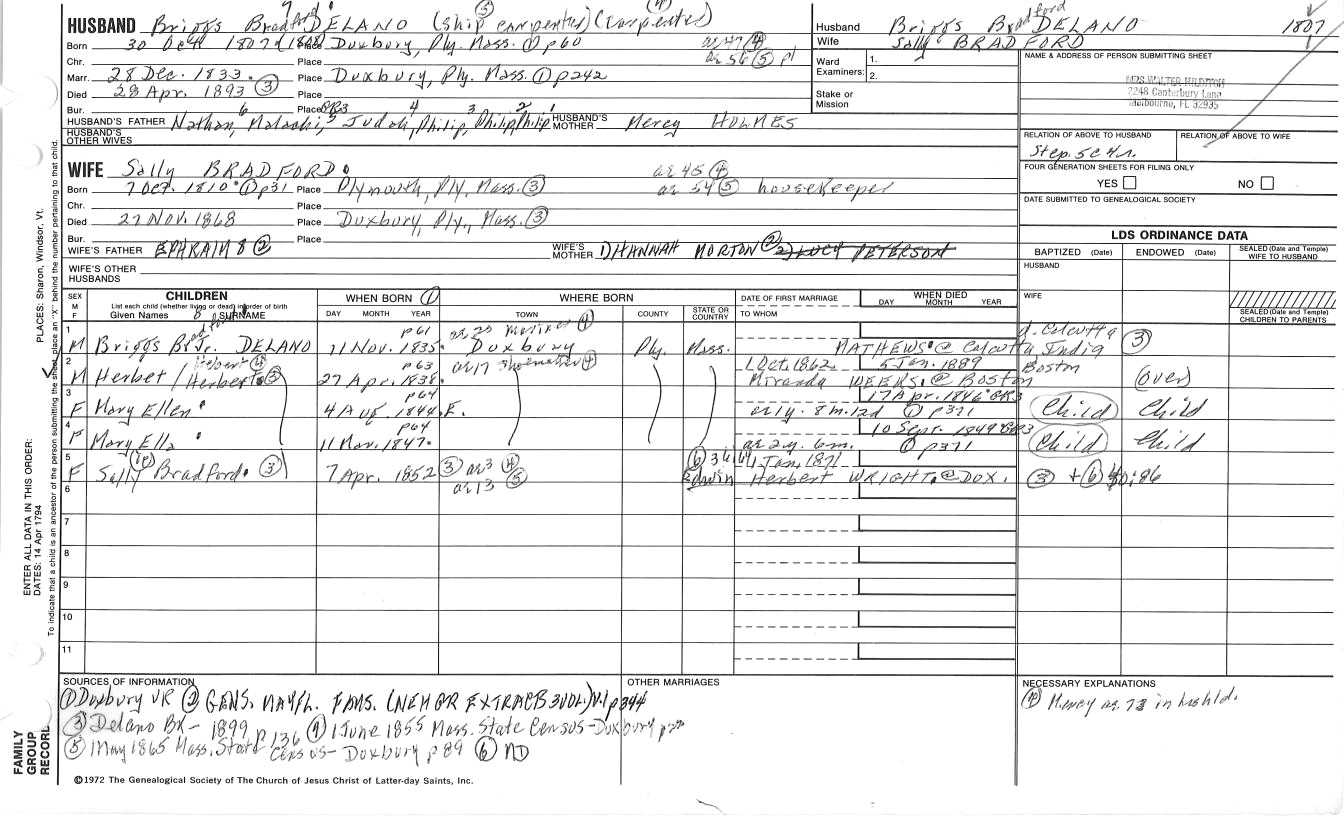 HUSBAND Briggs Bradford 7 DELANO (Ship carpenter) (5) (carpenter) (4)
Born 30 Oct 1807 (1808) Place Duxbury, Ply. Mass. ① p60 ae 47 ④
ae 56 ⑤ p1
Chr. Place
Marr. 28 Dec. 1833. Place Duxbury, Ply. Mass. ① p242
Died 28 Apr. 1893 ③ Place
Bur. Place
HUSBAND'S FATHER Nathan 6, Malachi 5, Judah 4, Philip 3, Philip 2, Philip 1 HUSBAND'S MOTHER Mercy HOLMES
HUSBAND'S OTHER WIVES
WIFE Sally BRADFORD.
ae 45 ④
Born 7 Oct. 1810. ① p31 Place Plymouth, Ply. Mass. ③ ae 54 ⑤ housekeeper
Chr. Place
Died 27 Nov. 1868 Place Duxbury, Ply., Mass. ③
Bur. Place
WIFE'S FATHER EPHRAIM 8 ② WIFE'S MOTHER 1) HANNAH MORTON ② 2) LUCY PETERSON
WIFE'S OTHER HUSBANDS
SEX M F
CHILDREN
List each child (whether living or dead) in order of birth
Given Names SURNAME
WHEN BORN ①
DAY MONTH YEAR
WHERE BORN
TOWN COUNTY STATE OR COUNTRY
DATE OF FIRST MARRIAGE
TO WHOM
WHEN DIED
DAY MONTH YEAR
1 M Briggs Bradford 8 Jr. DELANO 11 Nov. 1835. p61 Duxbury ae 20 Mariner ④ Ply. Mass. MATHEWS @ Calcutta India d. Calcutta ③
2 M Herbet / Herbert ③ 27 Apr. 1838. p63 ae 17 Shoemaker ④ 1 Oct. 1862 Miranda WEEKS. @ Boston 5 Jan. 1889 Boston (over)
3 F Mary Ellen. 4 Aug. 1844. p64 E. 17 Apr. 1846 GR3 ae 1y. 8m. 12d ① p371 Child Child
4 F Mary Ella 11 Mar. 1847. p64 10 Sept. 1849 GR3 ae 2y. 6m. ① p371 Child Child
5 F Sally (ie) Bradford. ③ 7 Apr. 1852 ③ ae 3 ④ ae 13 ⑤ 1 Jan. 1871 Edwin Herbert WRIGHT. @ DUX. ③ + ⑥
6
7
8
9
10
11
SOURCES OF INFORMATION
① Duxbury VR ② GENS. MAYFL. FAMS. (NEHGR EXTRACTS 3 VOL.) V.1 p344
③ Delano BK - 1899 p 136 ④ 1 June 1855 Mass. State Census - Duxbury
⑤ May 1865 Mass. State Census - Duxbury p 89 ⑥
OTHER MARRIAGES
©1972 The Genealogical Society of The Church of Jesus Christ of Latter-day Saints, Inc.
Husband Briggs Bradford DELANO 1807
Wife Sally BRADFORD
Ward Examiners: 1.
2.
Stake or Mission
NAME & ADDRESS OF PERSON SUBMITTING SHEET
MRS. WALTER
2248 Canterbury Lane
Melbourne, FL 32935
RELATION OF ABOVE TO HUSBAND RELATION OF ABOVE TO WIFE
FOUR GENERATION SHEETS FOR FILING ONLY
YES NO
DATE SUBMITTED TO GENEALOGICAL SOCIETY
LDS ORDINANCE DATA
BAPTIZED (Date) ENDOWED (Date) SEALED (Date and Temple) WIFE TO HUSBAND
HUSBAND
WIFE
SEALED (Date and Temple) CHILDREN TO PARENTS
NECESSARY EXPLANATIONS
④ Mercy ae. 78 in hushld.
PLACES: Sharon, Windsor, Vt.
ENTER ALL DATA IN THIS ORDER:
DATES: 14 Apr 1794
To indicate that a child is an ancestor of the person submitting the sheet, place an "X" behind the number pertaining to that child.
FAMILY GROUP RECORD